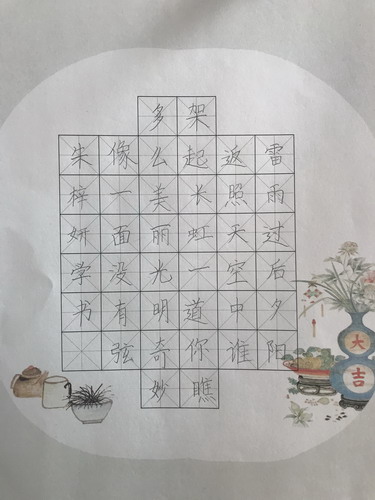 雷雨过后夕阳
返照天空中谁
架起长虹一道你瞧
多么美丽光明奇妙
像一面没有弦
朱梓妍学书
大吉